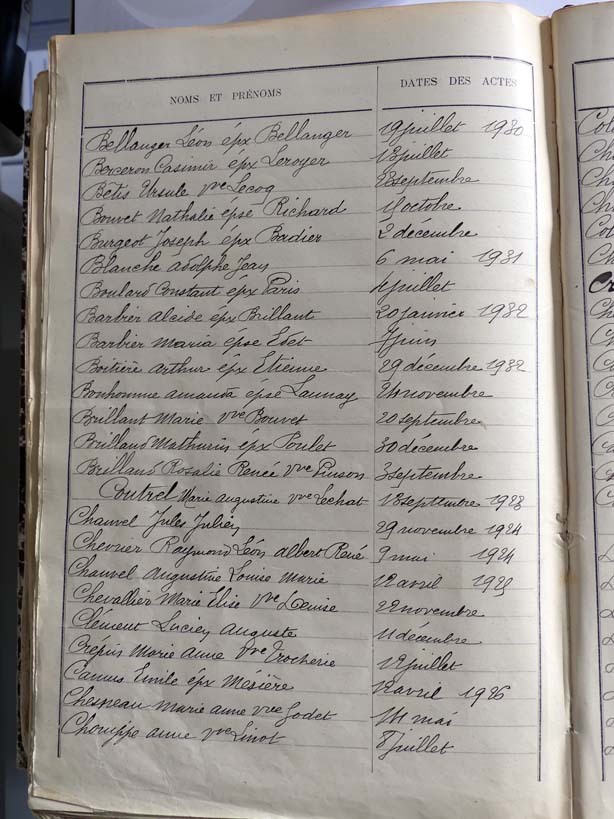 NOMS ET PRÉNOMS DATES DES ACTES
Bellanger Léon épx Bellanger 19 juillet 1930
Berceron Casimir épx Leroyer 13 juillet
Bétis Ursule Vve Lecoq 28 septembre
Bouvet Nathalie épse Richard 11 octobre
Burgeot Joseph épx Badier 2 décembre
Blanche Adolphe Jean 6 mai 1931
Boulard Constant épx Paris 4 juillet
Barbier Alcide épx Brillant 20 janvier 1932
Barbier Maria épse juin
Boitière Arthur épx Etienne 29 décembre 1932
Bonhomme Amanda épse Launay 24 novembre
Brillant Marie Vve Bouvet 20 septembre
Brilland Mathurin épx Poulet 30 décembre
Brilland Rosalie Renée Vve Pinson 3 septembre
Coutrel Marie Augustine Vve Lechat 18 septembre 1923
Chauvel Jules Julien 29 novembre 1924
Chevrier Raymond Léon Albert René 9 mai 1924
Chauvel Augustine Louise Marie 12 avril 1925
Chevallier Marie Elise Vve 22 novembre
Clément Lucien Auguste 11 décembre
Crépin Marie Anne Vve Trocherie 12 juillet
Camus Emile épx Mésière 12 avril 1926
Chesneau Marie Anne Vve Godet 14 mai
Chouippe Anne Vve Linot 8 juillet